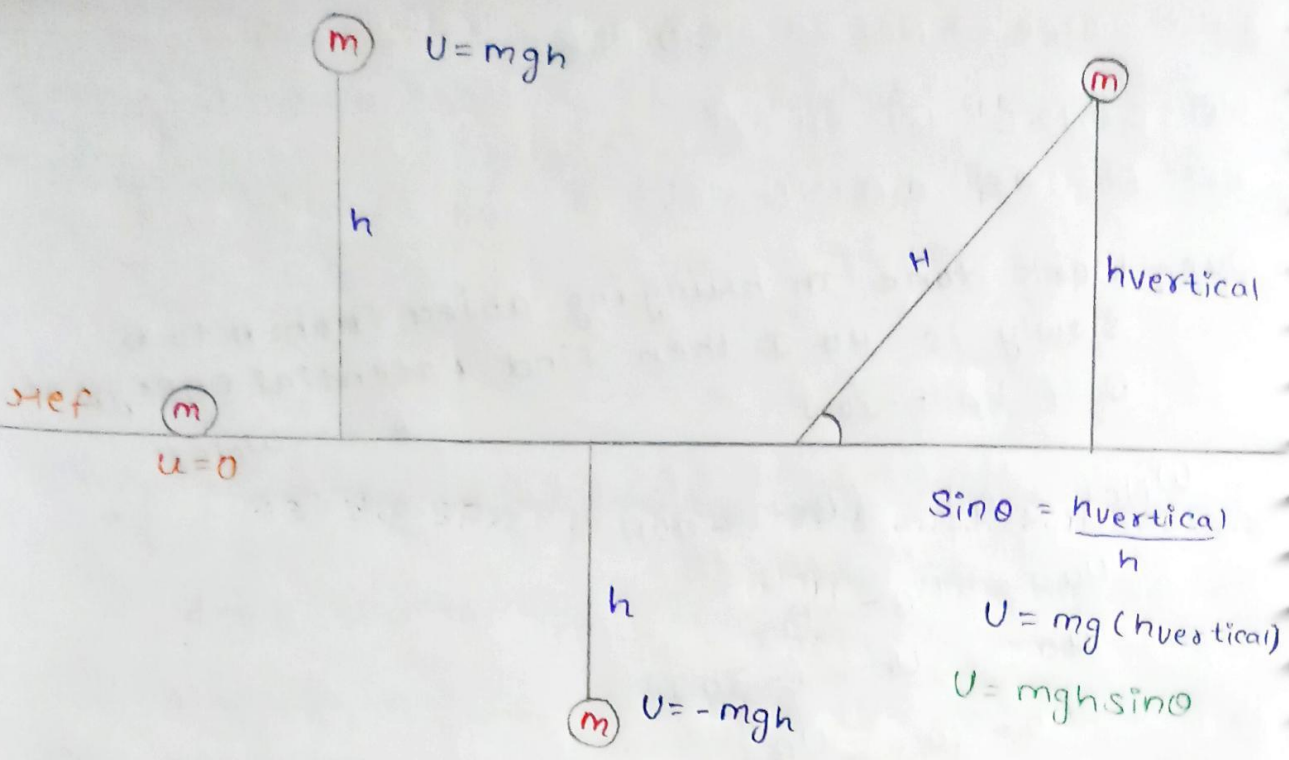 m
U = mgh
m
h
H
hvertical
ref
m
u = 0
Sinθ = hvertical
h
h
U = mg (hvertical)
U = mghsinθ
m
U = - mgh